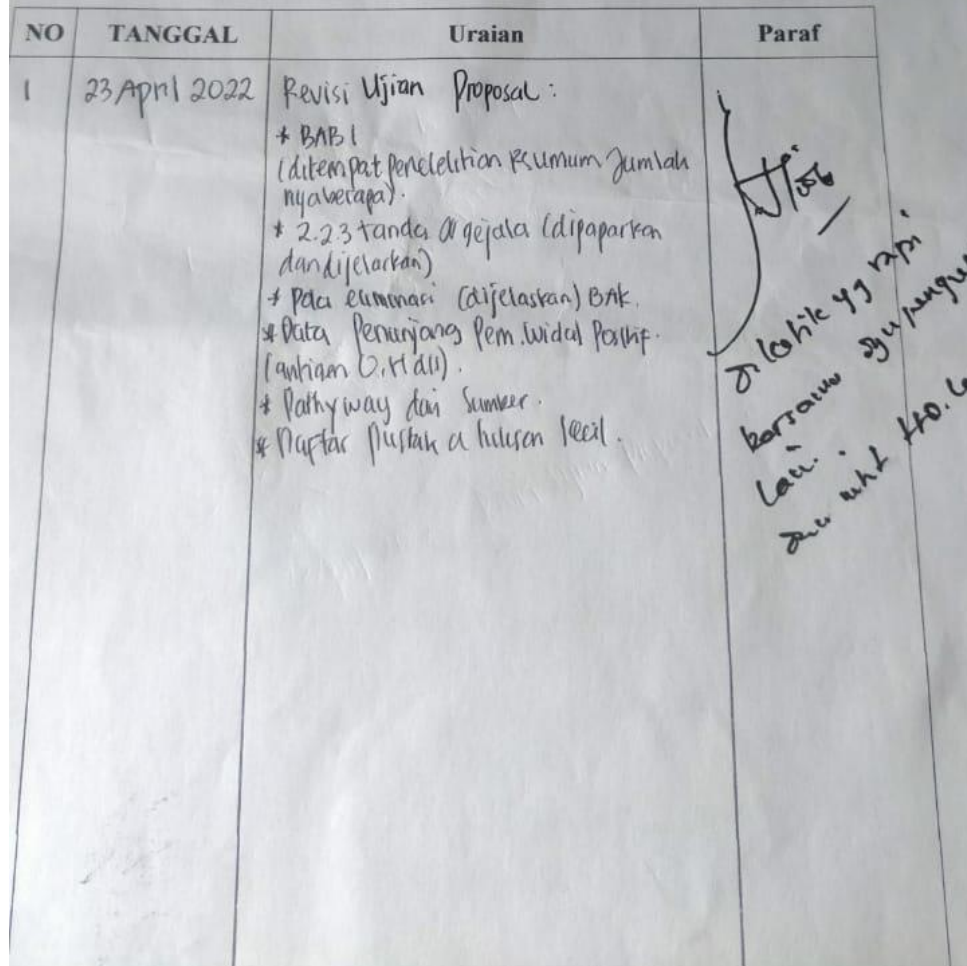 NO TANGGAL Uraian Paraf
1 23 April 2022 Revisi Ujian Proposal :
* BAB 1
(ditempat penelelitian RSumum Jumlah
nyaberapa).
* 2.2.3 tanda & gejala (dipaparkan
dandijelaskan)
* Pola eliminasi (dijelaskan) BAK.
* Data Penunjang Pem. Widal Positif.
(antigen O, H dll).
* Pathyway dan Sumber.
* Daftar Pustaka tulisan kecil.
yg rapi